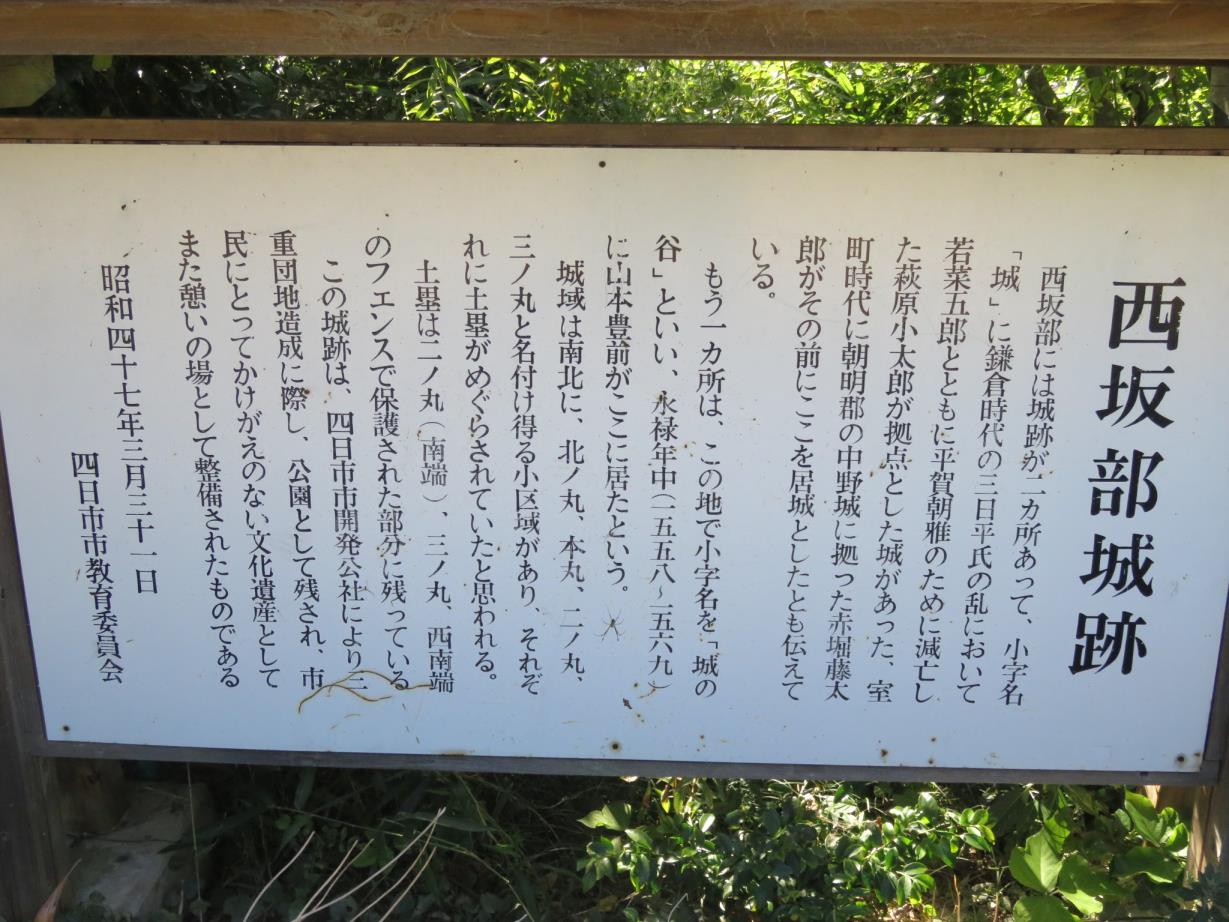 西坂部城跡
西坂部には城跡が二カ所あって、小字名
「城」に鎌倉時代の三日平氏の乱において
若菜五郎とともに平賀朝雅のために減亡し
た萩原小太郎が拠点とした城があった、室
町時代に朝明郡の中野城に拠った赤堀藤太
郎がその前にここを居城としたとも伝えて
いる。
もう一カ所は、この地で小字名を「城の
谷」といい、永禄年中(一五五八~一五六九)
に山本豊前がここに居たという。
城域は南北に、北ノ丸、本丸、二ノ丸、
三ノ丸と名付け得る小区域があり、それぞ
れに土塁がめぐらされていたと思われる。
土塁は二ノ丸(南端)、三ノ丸、西南端
のフェンスで保護された部分に残っている
この城跡は、四日市市開発公社により三
重団地造成に際し、公園として残され、市
民にとってかけがえのない文化遺産として
また憩いの場として整備されたものである
昭和四十七年三月三十一日
四日市市教育委員会